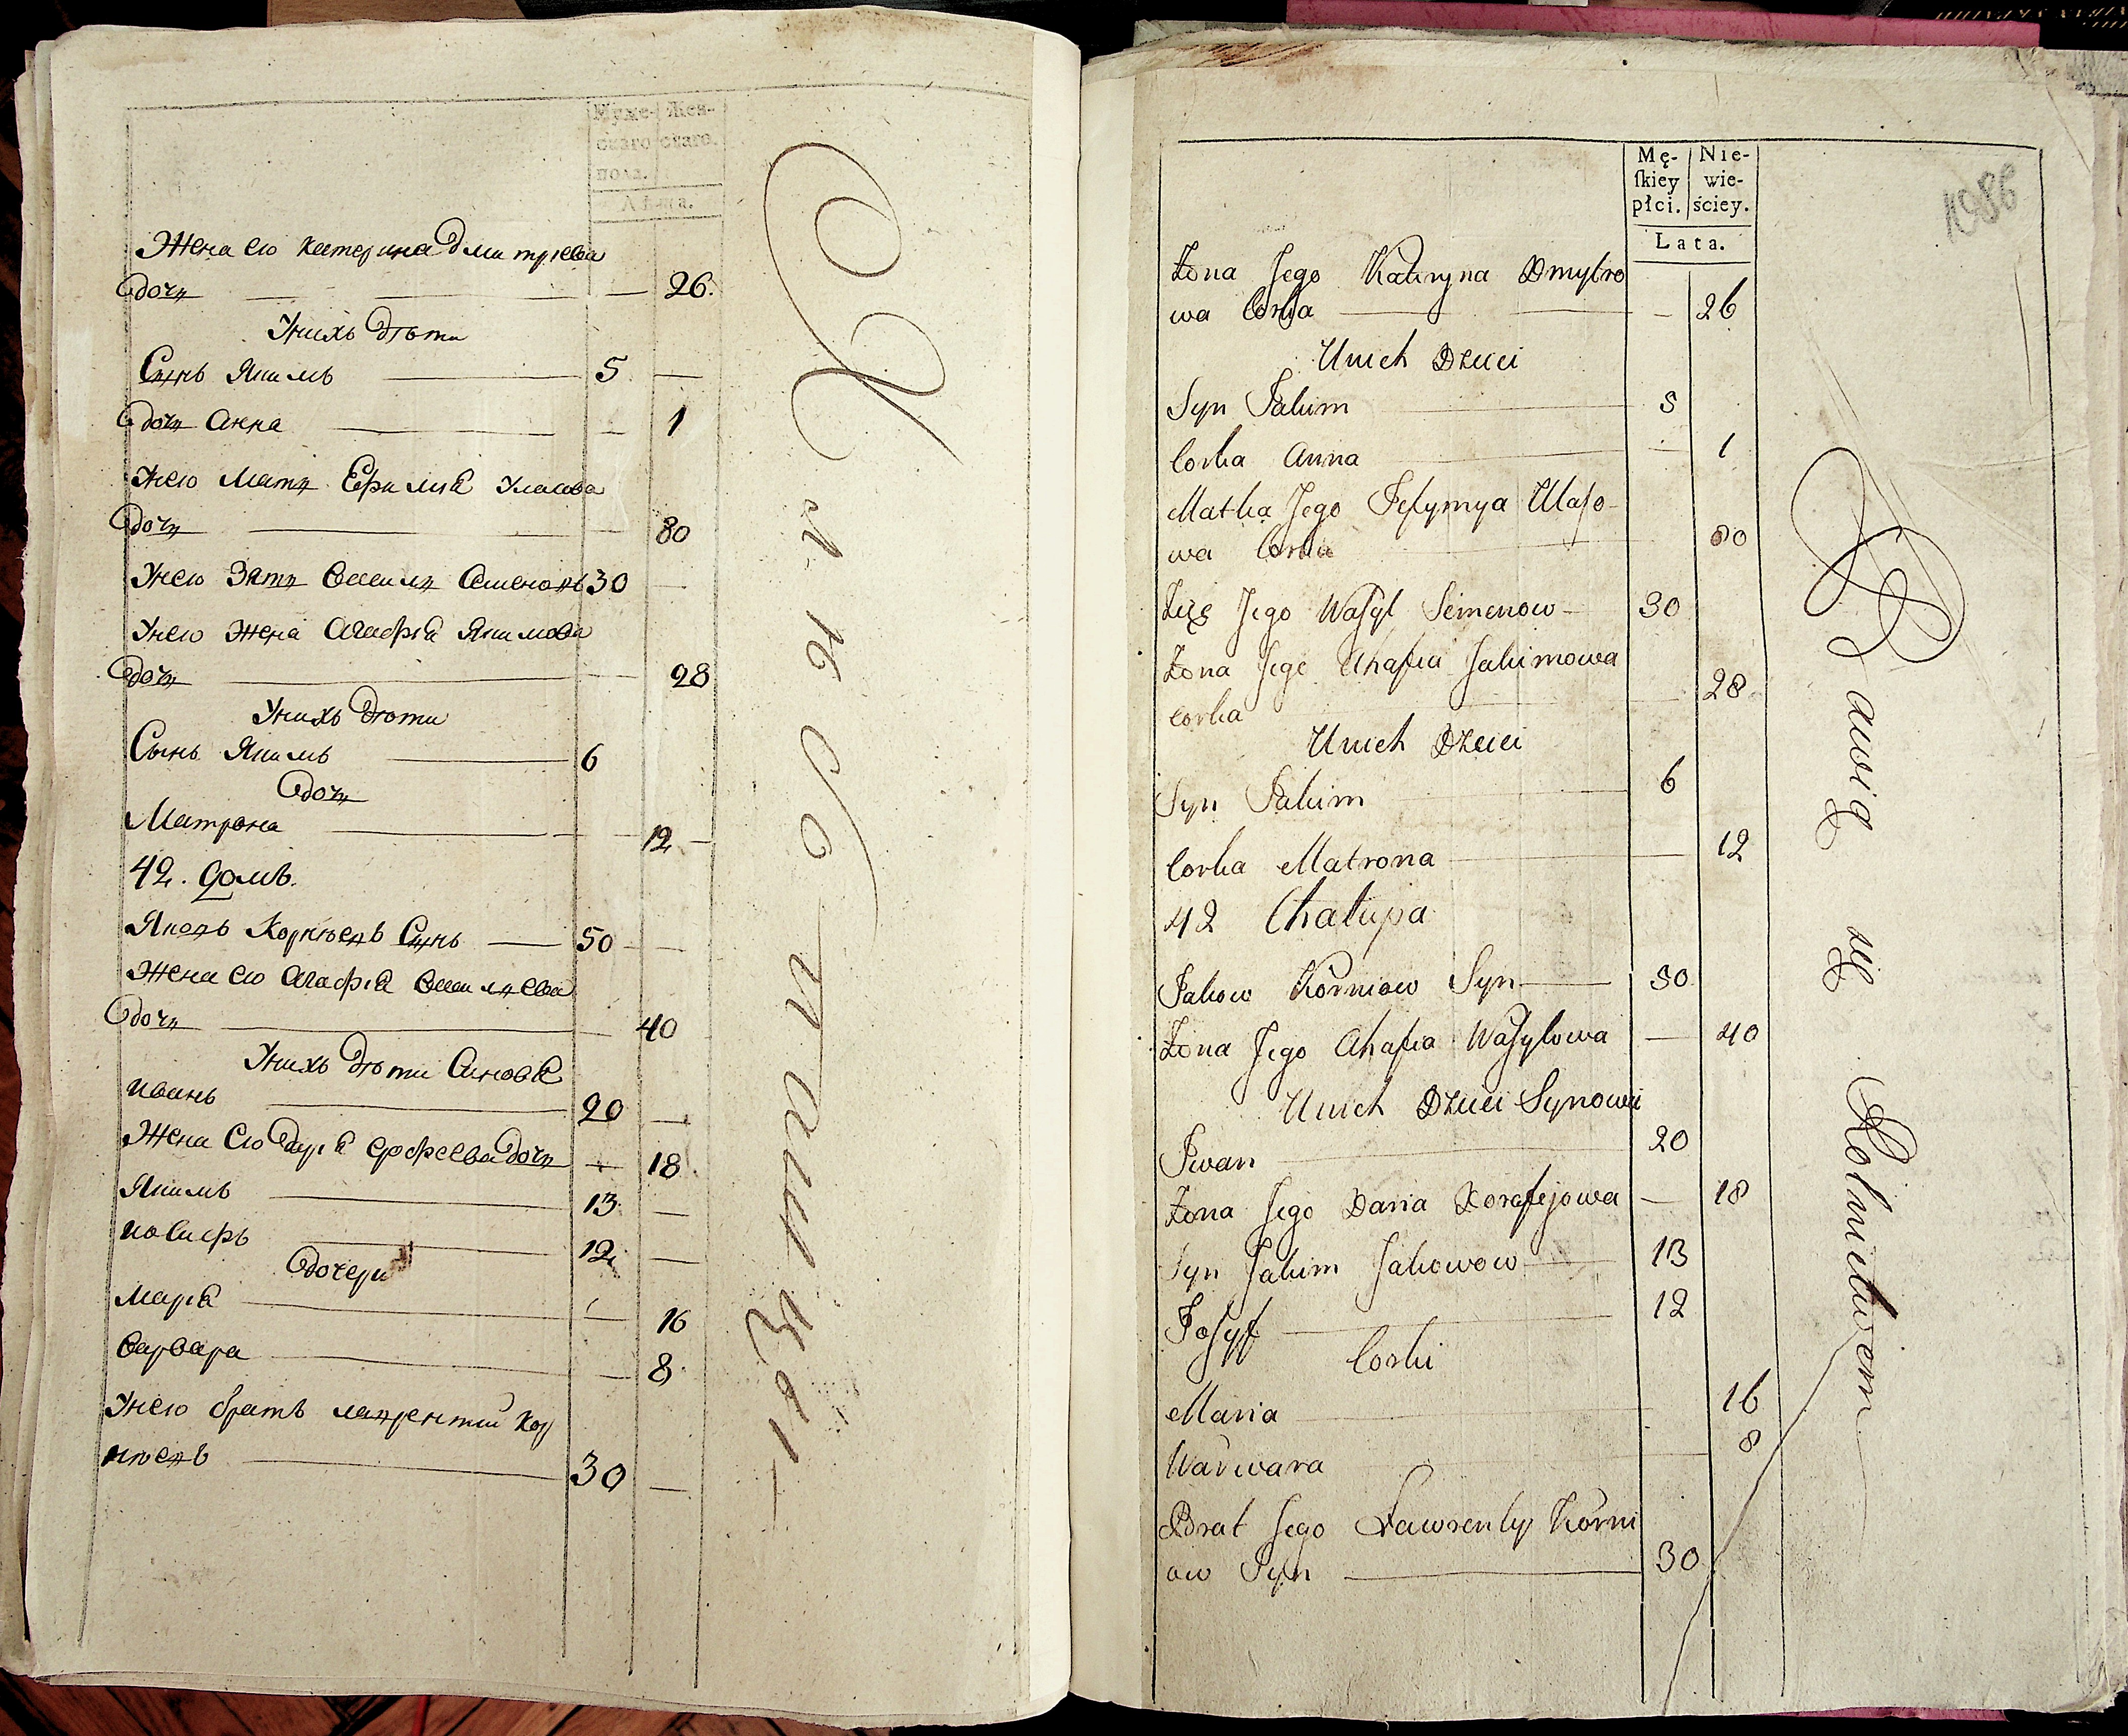 Муже-
скаго
пола.
Жен-
скаго.
Лѣта.
Жена его катерина дмитрıева
дочъ — 26.
Унихъ дѣти
Сынъ Якимъ — 5 —
дочъ Анна — 1
Унего Матъ Ефимıя Уласова
дочъ — 80
Унего Зятъ Василъ Семеновъ 30 —
Унего жена Агафıя Якимова
дочъ — 28
Унихъ дѣти
Сынъ Якимъ — 6
дочъ
Матрона — 12 —
42. домъ.
Яковъ Корнѣевъ Сынъ — 50 —
Жена его Агафıя Василъева
дочъ — 40
Унихъ дѣти Синовя
иванъ — 20 —
Жена Его дарıя ерофеева дочъ — 18
Якимъ — 13 —
иосифъ — 12 —
дочери
Марıя — 16
варвара — 8
Унего братъ лаврентıи кор
нѣевъ — 30 —
Mę-
ſkiey
płci.
Nie-
wie-
ściey.
Lata.
1086
Żona Jego Kateryna Dmytro
wa Corka — 26
Unich Dzieci
Syn Jakim — 5
Corka Anna — 1
Matka Jego Jefymya Ułaſo-
wa Corka — 80
Zięć Jego Waſyl Semenow — 30
Żona Jego Ahafia Jakimowa
corka — 28
Unich Dzieci
Syn Jakim — 6
Corka Matrona — 12
42 Chałupa
Jakow Korniow Syn — 50
Żona Jego Ahafia Waſylowa — 40
Unich Dzieci Synowie
Iwan — 20
Żona Jego Daria Dorafejowa — 18
Syn Jakim Jakowow — 13
Joſyf — 12
Corki
Maria — 16
Warwara — 8
Brat Jego Ławrenty Korni
ow Syn — 30
Bawią się Rolnictwem